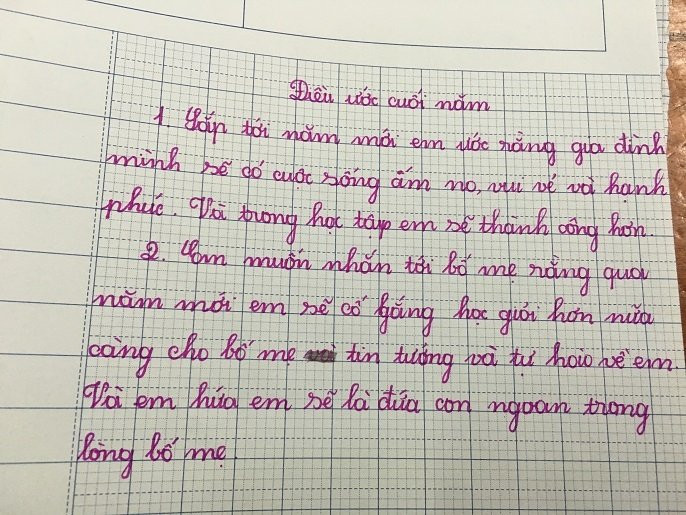 Điều ước cuối năm
1. Sắp tới năm mới em ước rằng gia đình
mình sẽ có cuộc sống ấm no, vui vẻ và hạnh
phúc. Và trong học tập em sẽ thành công hơn.
2. Em muốn nhắn tới bố mẹ rằng qua
năm mới em sẽ cố gắng học giỏi hơn nữa
càng cho bố mẹ tin tưởng và tự hào về em.
Và em hứa em sẽ là đứa con ngoan trong
lòng bố mẹ.